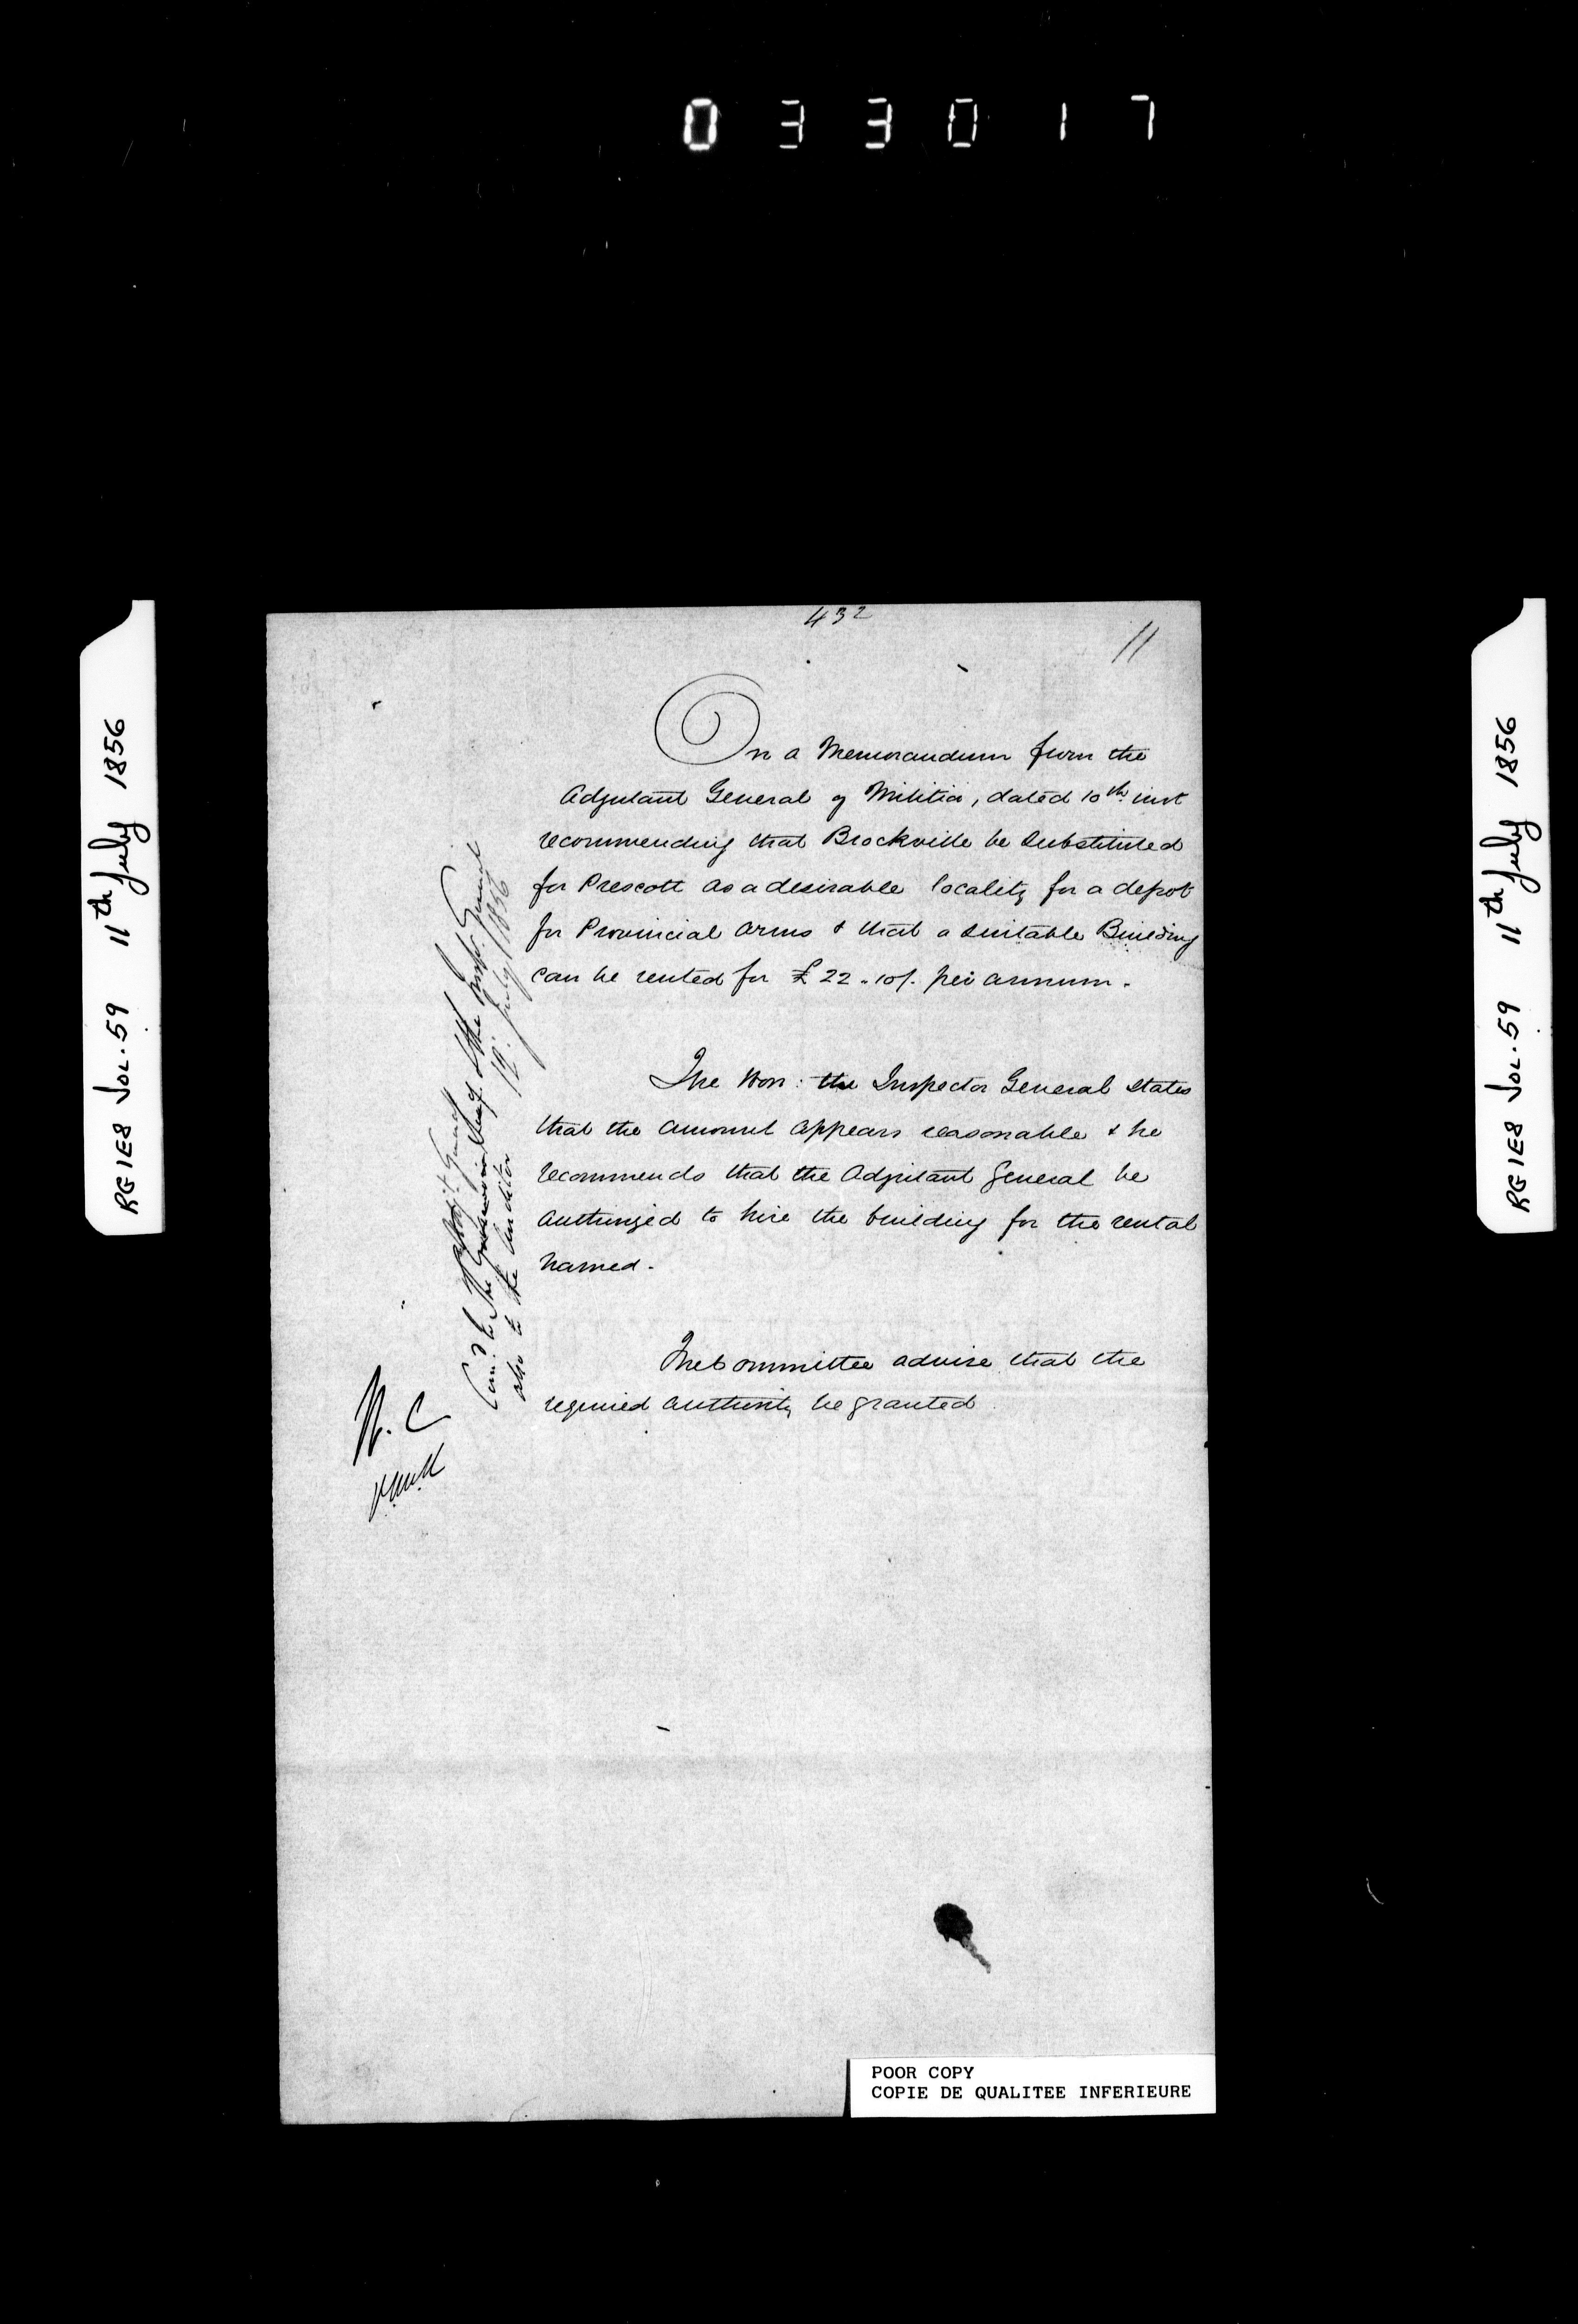 033017
RG1E8 VOL. 59 11th July 1856
432
11
On a Memorandum from the
Adjutant General of Militia, dated 10th inst
recommending that Brockville be substituted
for Prescott as a desirable locality for a depot
for Provincial Arms & that a suitable Building
can be rented for £22.10/. per annum.
The Hon: the Inspector General states
that the amount appears reasonable & he
recommends that the Adjutant General be
authorized to hire the building for the rental
named.
The Committee advise that the
required authority be granted
to the
also to the Auditor
the Insp. General
July 1856
POOR COPY
COPIE DE QUALITEE INFERIEURE
RG1E8 VOL. 59 11th July 1856